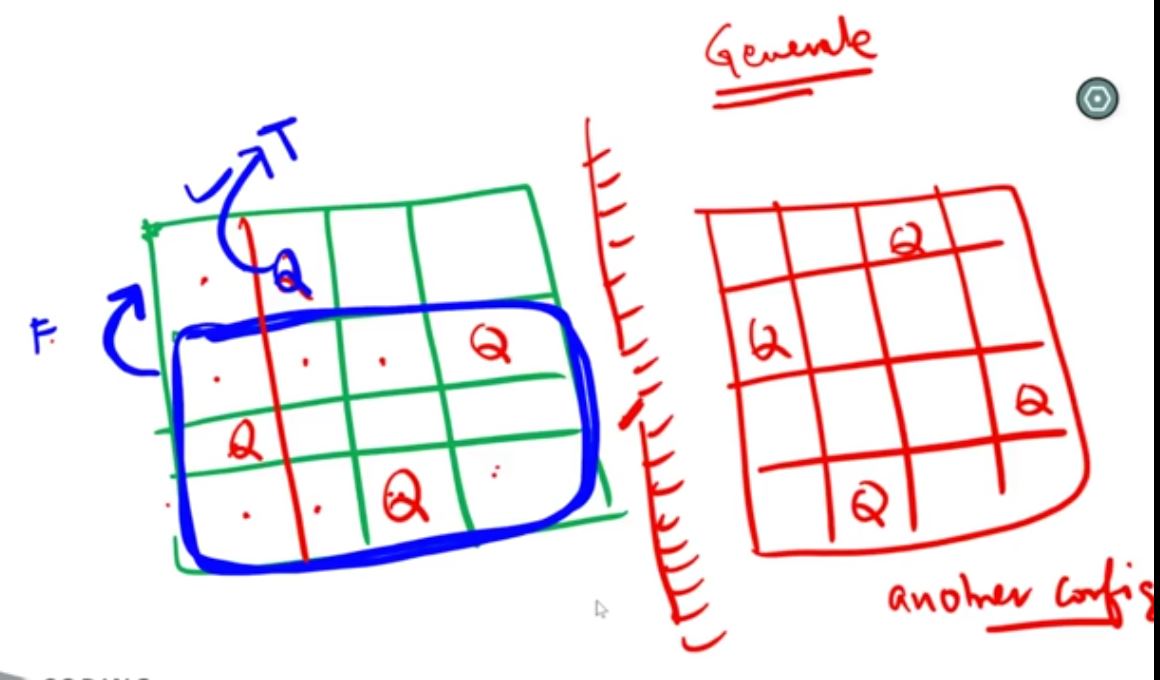 Generate
T
Q
Q
F
Q
Q
Q
Q
Q
Q
another config